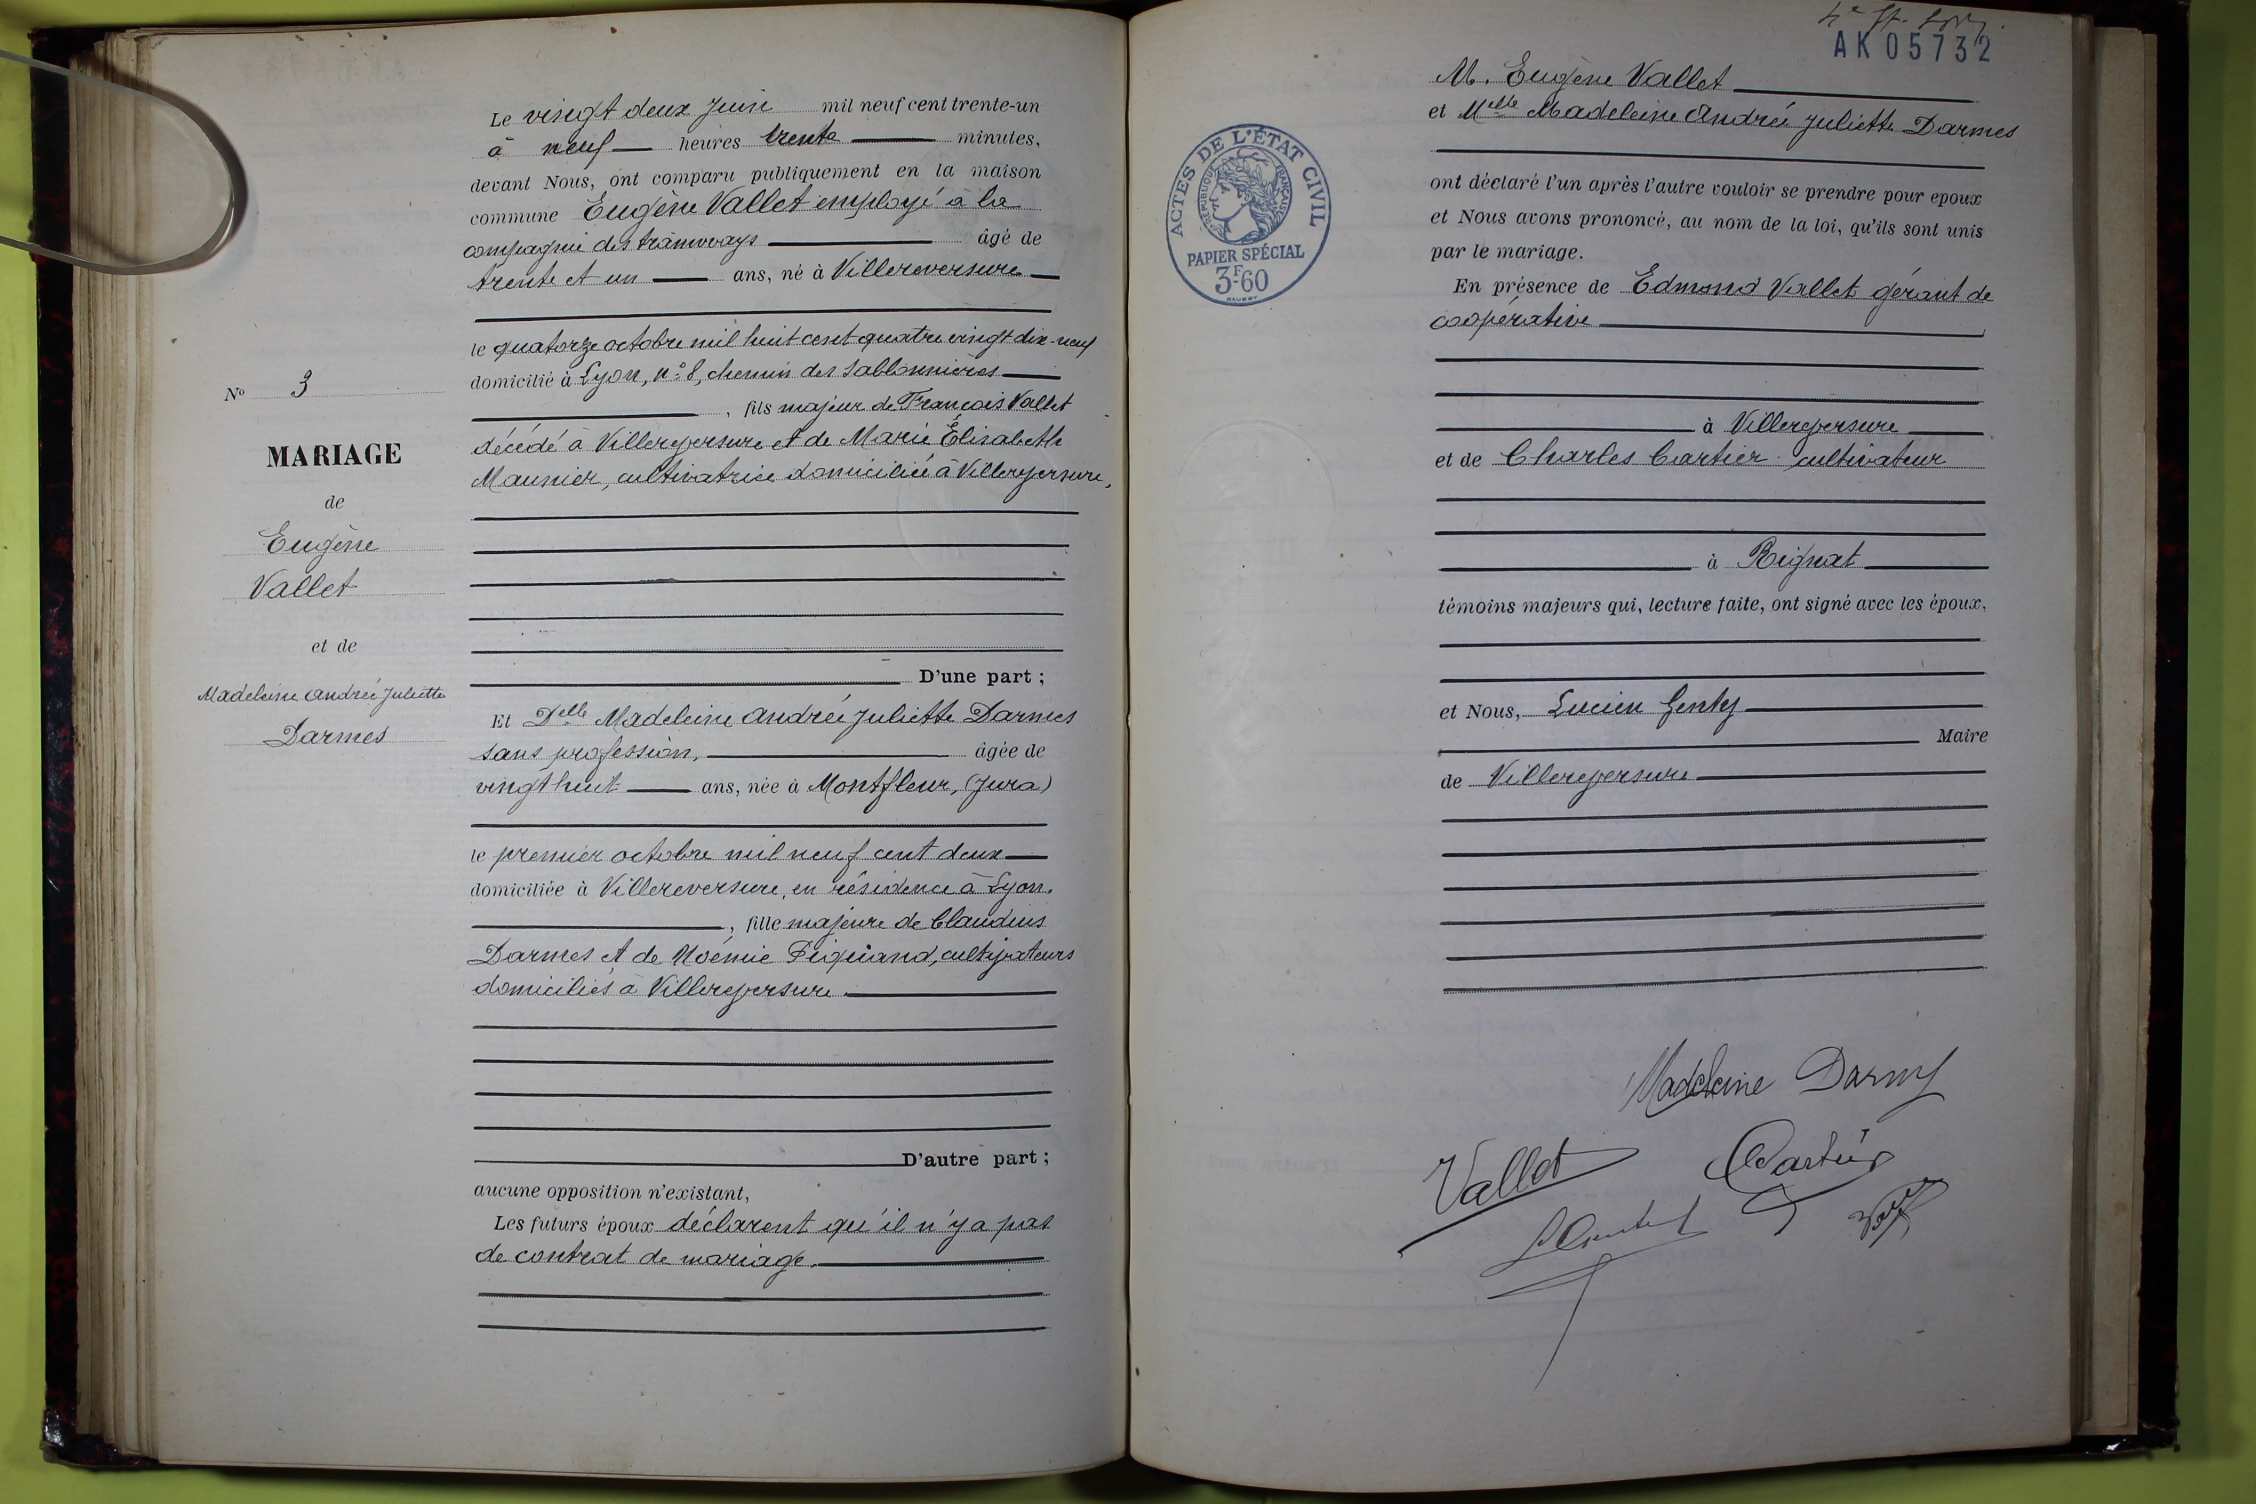 Le vingt deux juin mil neuf cent trente-un
à neuf heures trente minutes,
devant Nous, ont comparu publiquement en la maison
commune Eugène Vallet employé à la
compagnie des tramways âgé de
trente et un ans, né à Villereversure
le quatorze octobre mil huit cent quatre vingt dix-neuf
domicilié à Lyon, n° 8, chemin des Sablonnières
, fils majeur de François Vallet
décédé à Villereversure et de Marie Élisabeth
Maunier, cultivatrice domiciliée à Villereversure,
D'une part ;
Et Delle Madeleine Andrée Juliette Darmes
sans profession, âgée de
vingt huit ans, née à Montfleur, (Jura)
le premier octobre mil neuf cent deux
domiciliée à Villereversure, en résidence à Lyon.
, fille majeure de Claudius
Darmes et de Noémie Piquand, cultivateurs
domiciliés à Villereversure
D'autre part ;
aucune opposition n'existant,
Les futurs époux déclarent qu'il n'y a pas
de contrat de mariage.
No 3
MARIAGE
de
Eugène
Vallet
et de
Madeleine Andrée Juliette
Darmes
AK 05732
M. Eugène Vallet
et Melle Madeleine Andrée Juliette Darmes
ont déclaré l'un après l'autre vouloir se prendre pour epoux
et Nous avons prononcé, au nom de la loi, qu'ils sont unis
par le mariage.
En présence de Edmond Vallet gérant de
coopérative
à Villereversure
et de Charles Cartier cultivateur
à Rignat
témoins majeurs qui, lecture faite, ont signé avec les époux,
et Nous, Lucien Genty
Maire
de Villereversure
ACTES DE L'ÉTAT CIVIL
RÉPUBLIQUE FRANÇAISE
PAPIER SPÉCIAL
3F60
Madeleine Darmes
Vallet
Cartier